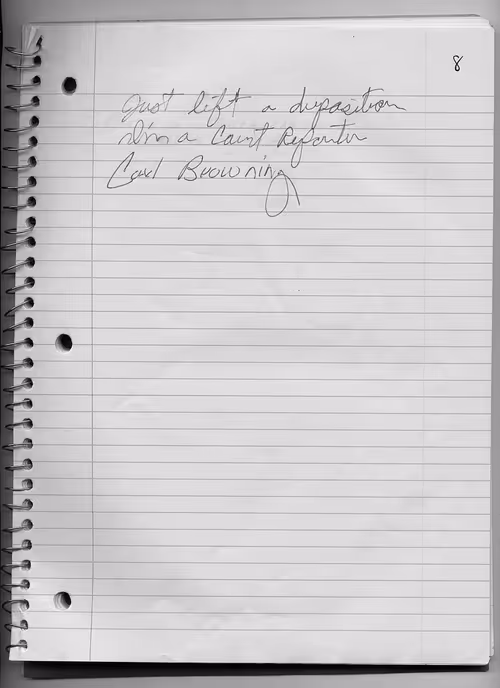 8
Just left a deposition
I'm a Court Reporter
Carl Browning